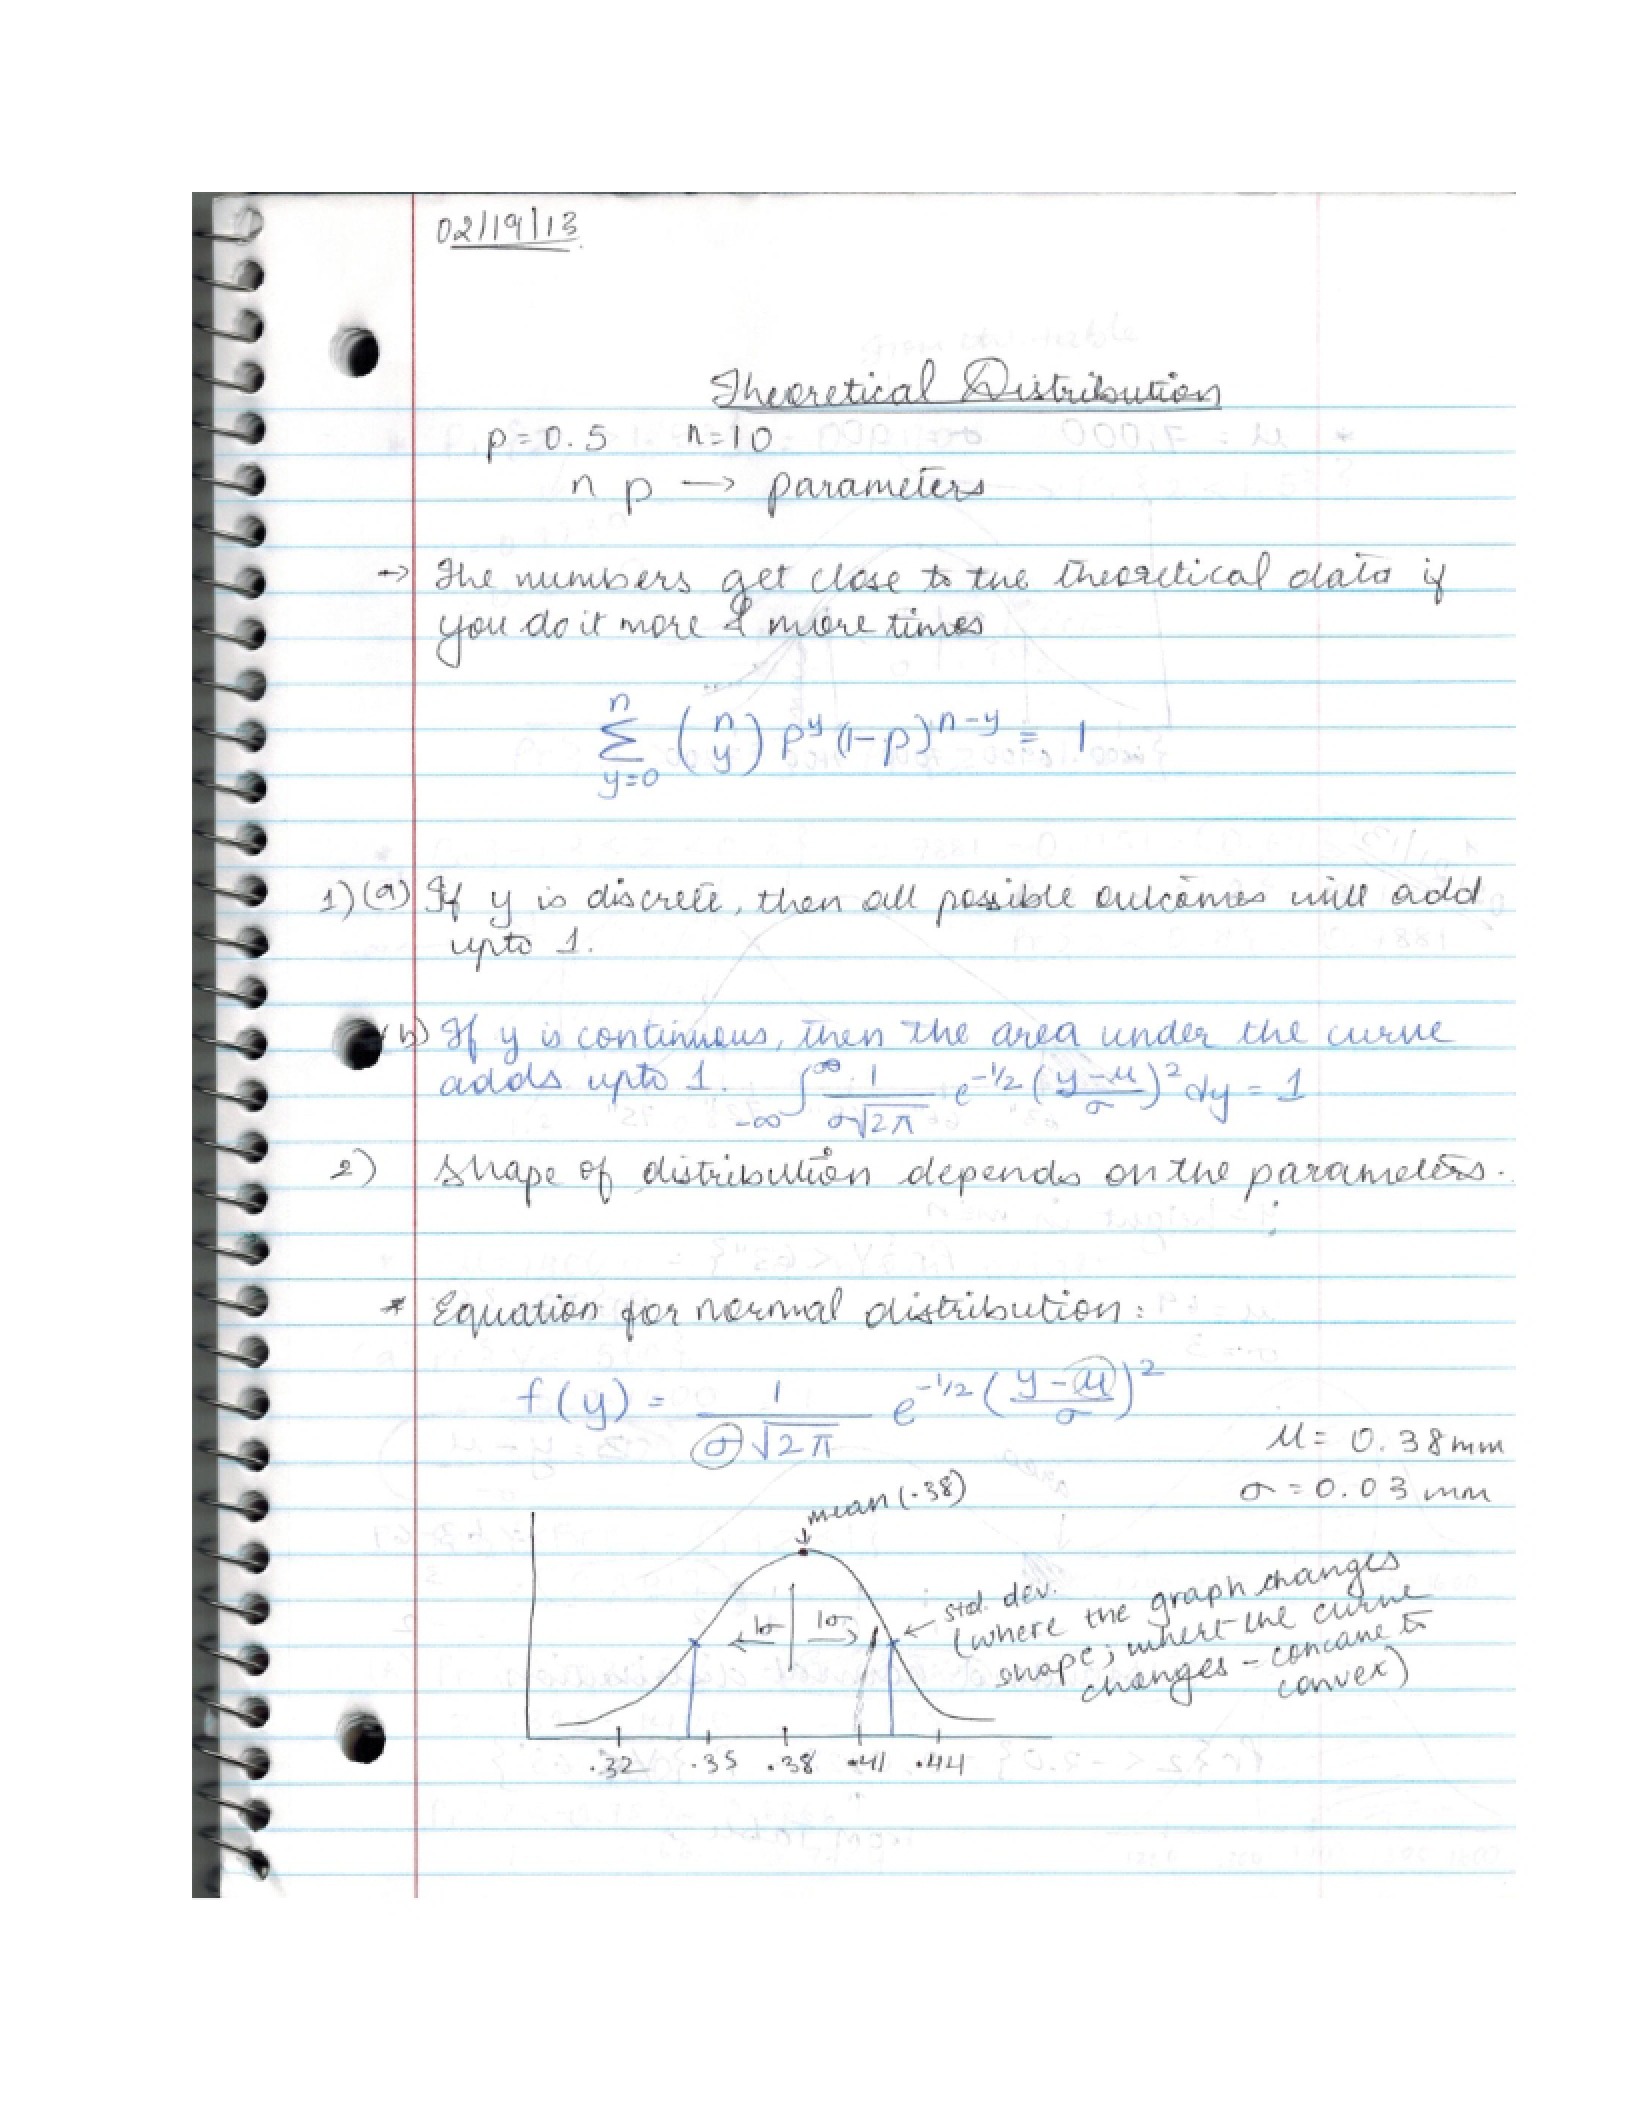 02/19/13
Theoretical Distribution
p=0.5 n=10
n p → parameters
→ The numbers get close to the theoretical data if
you do it more & more times
n
∑ (n y) p^y (1-p)^n-y = 1
y=0
1) (a) If y is discrete, then all possible outcomes will add
upto 1.
(b) If y is continuous, then the area under the curve
adds upto 1. -∞ ∫ ∞ 1/σ√2π e^-1/2 (y-μ/σ)² dy = 1
2) Shape of distribution depends on the parameters.
* Equation for normal distribution:
f(y) = 1/σ√2π e^-1/2 (y-μ/σ)²
μ = 0.38mm
σ = 0.03 mm
mean (.38)
1σ 1σ
std. dev.
(where the graph changes
shape; where the curve
changes - concave to
convex)
.32 .35 .38 .41 .44